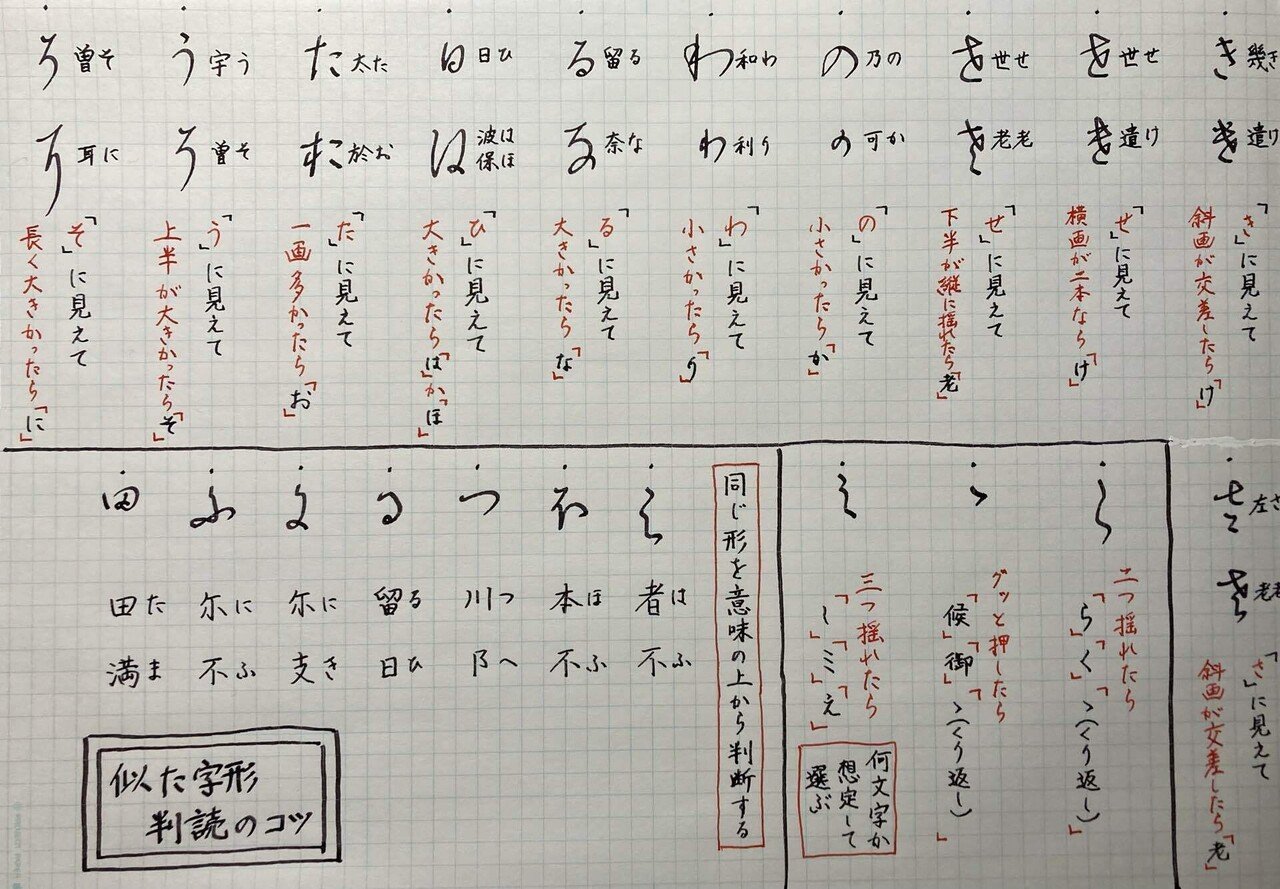 幾き
遣け
「き」に見えて
斜画が交差したら「け」
世せ
遣け
「せ」に見えて
横画が二本なら「け」
世せ
老老
「せ」に見えて
下半が縦に揺れたら「老」
乃の
可か
「の」に見えて
小さかったら「か」
和わ
利り
「わ」に見えて
小さかったら「り」
留る
奈な
「る」に見えて
大きかったら「な」
日ひ
波は
保ほ
「ひ」に見えて
大きかったら「は」か「ほ」
太た
於お
「た」に見えて
一画多かったら「お」
宇う
曽そ
「う」に見えて
上半が大きかったら「そ」
曽そ
耳に
「そ」に見えて
長く大きかったら「に」
左さ
老老
「さ」に見えて
斜画が交差したら「老」
二つ揺れたら
「ら」「く」「ゝ(くり返し)」
グッと押したら
「候」「御」「ゝ(くり返し)」
三つ揺れたら
「し」「ミ」「え」
何文字か
想定して
選ぶ
同じ形を意味の上から判断する
者は
不ふ
本ほ
不ふ
川つ
阝へ
留る
日ひ
尓に
支き
尓に
不ふ
田た
満ま
似た字形
判読のコツ